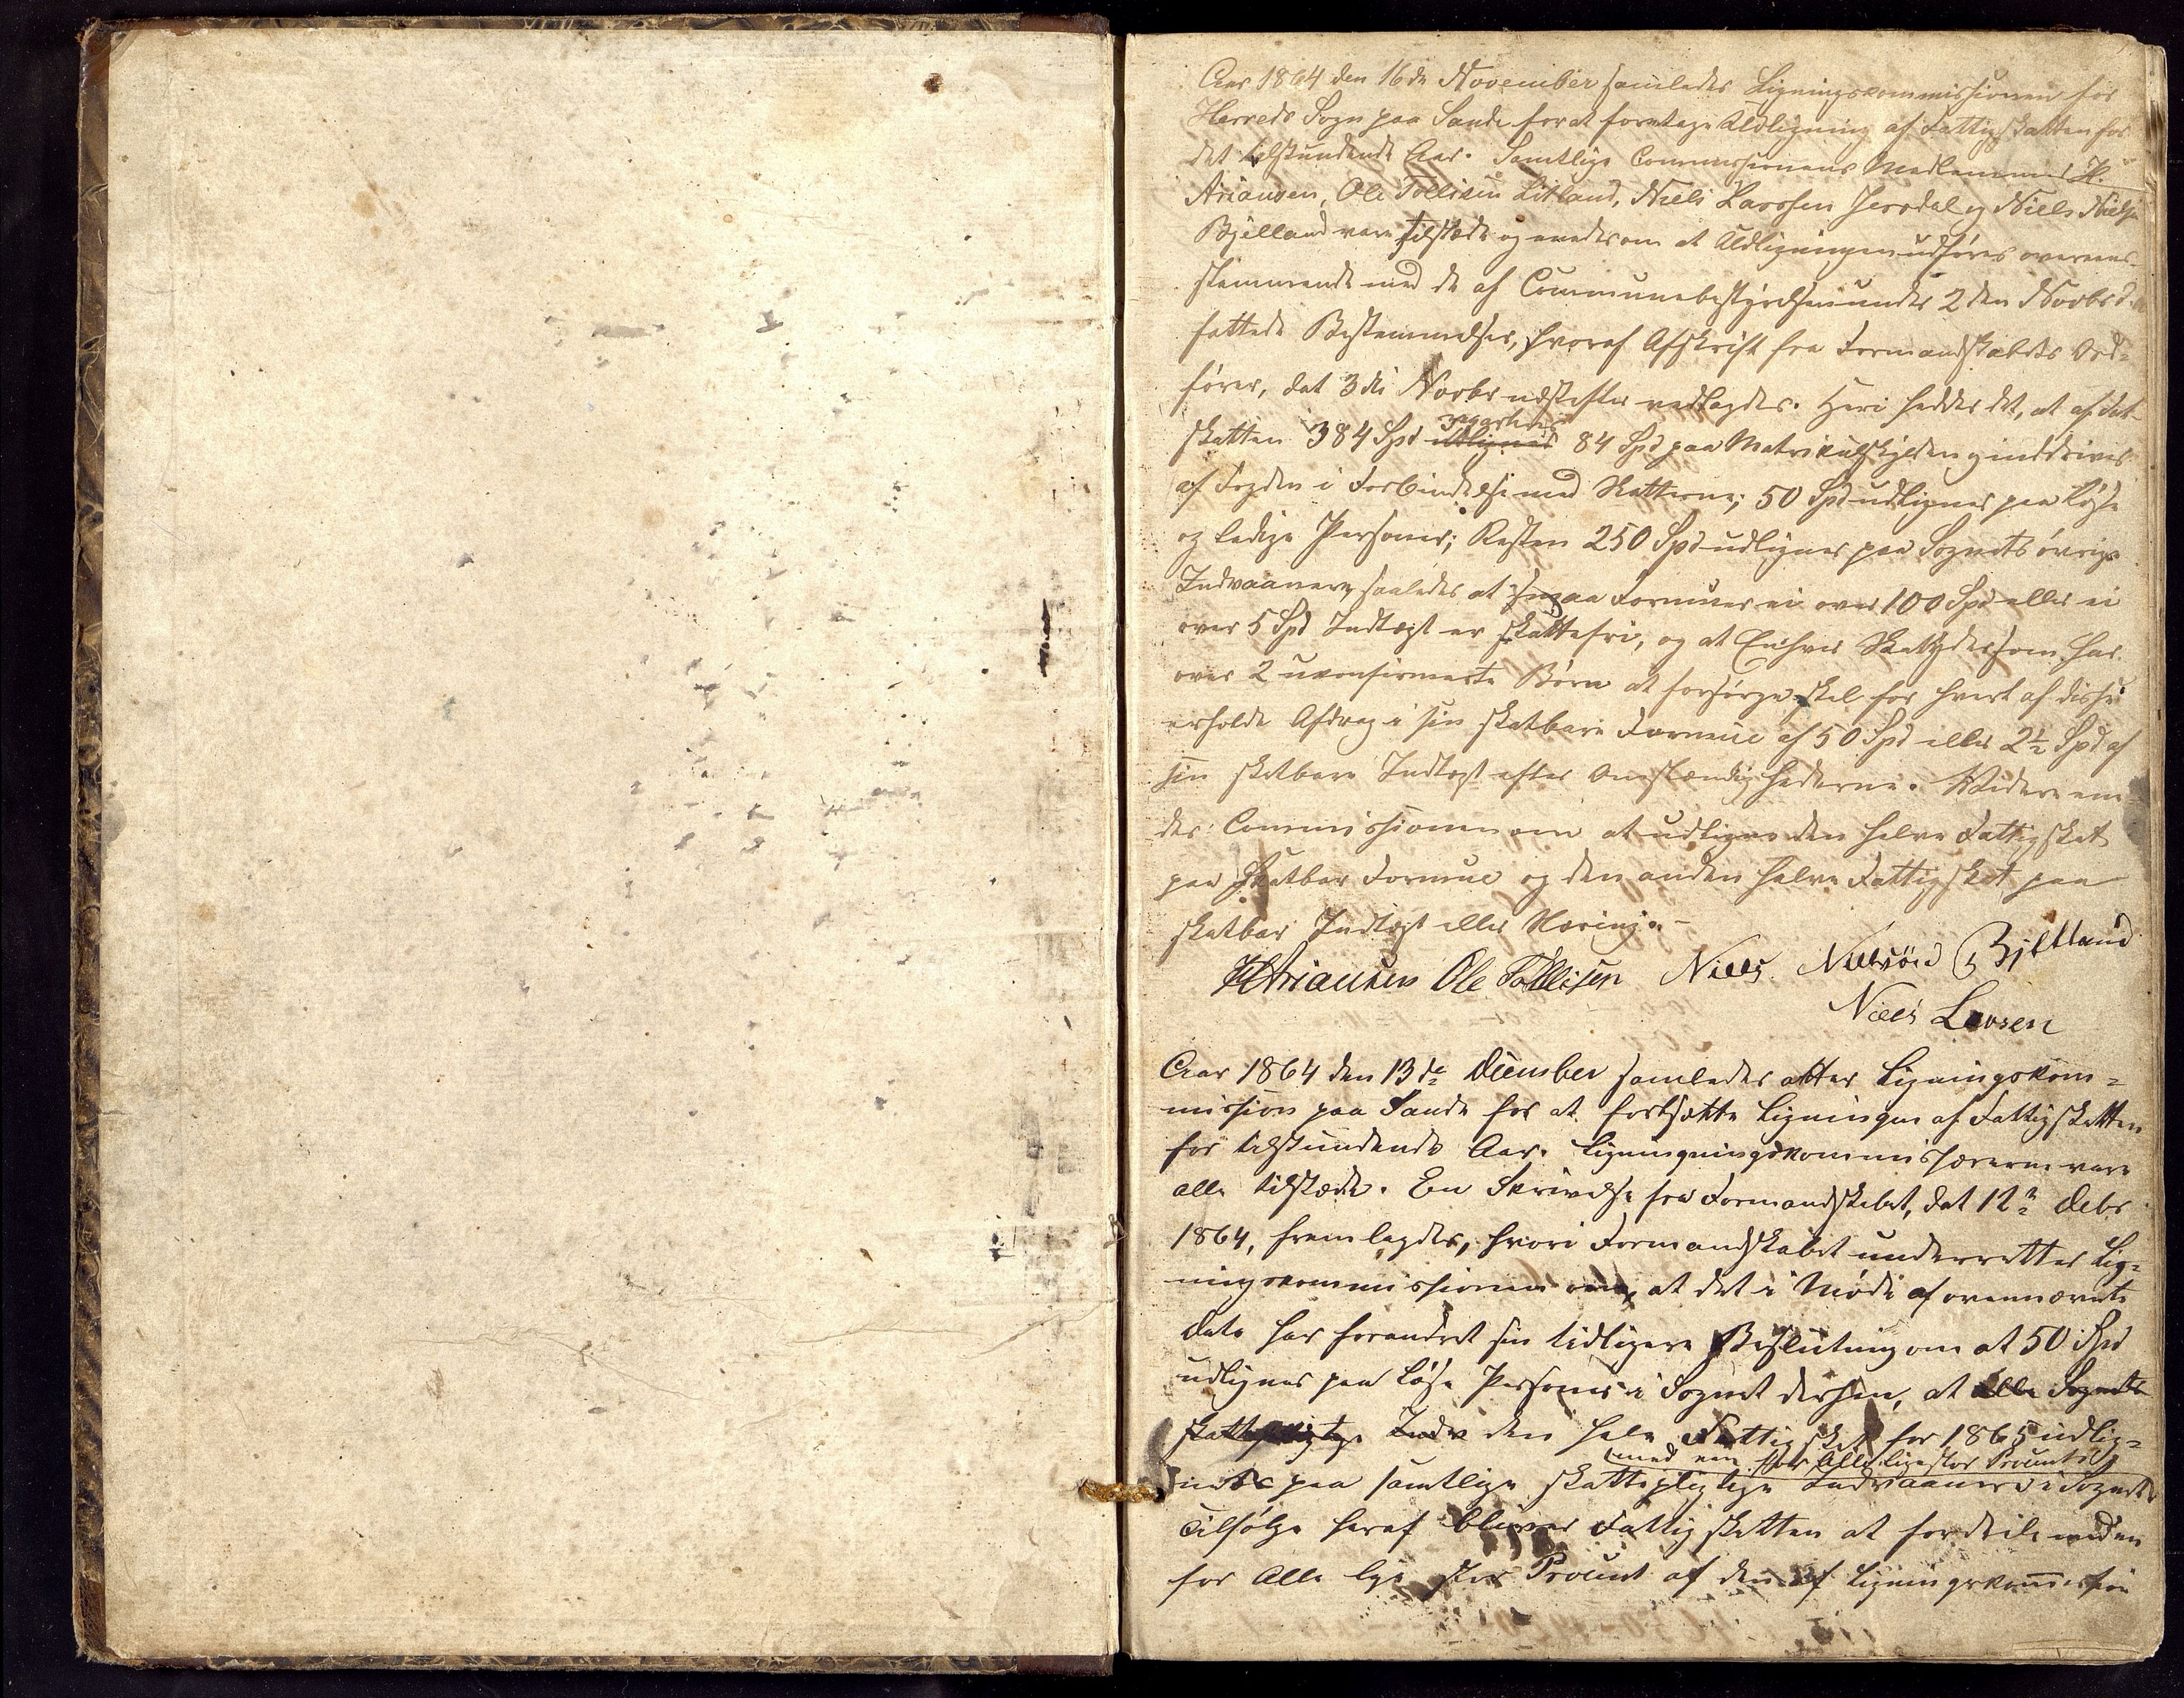 Aar 1864 den 16de November samledes Ligningskommissionen for
Herreds Sogn paa Sande for at foretage Udligning af Fattigskatten for
det tilstundende Aar. Samtlige Commissionens Medlemmer H.
Ariansen, Ole Tollisen Litland, Niels Larssen Jerdal og Niels Nielsen
Bjelland vare tilstede og enedes om at Udligningen udføres overeens-
stemmende med de af Communebestyrelsen under 2den Novbr d.
fattede Bestemmelser, hvoraf Afskrift fra Formandskabets Ord-
fører, dat 3die Novbr næstefter vedlagdes. Heri hedder det, at af Fat-
skatten 384 Spd udlignes 84 Spd paa Matrikulskylden og inddrives
af Fogden i Forbindelse med Skatterne; 50 Spd udlignes paa løse
og ledige Personer; Resten 250 Spd udlignes paa Sognets øvrige
Indvaanere, saaledes at smaa Formuer ei over 100 Spd eller ei
over 5 Spd Indtægt er skattefri, og at Enhver Skatyder som har
over 2 ukonfirmerte Børn at forsørge skal for hvert af disse
erholde Afdrag i sin skatbare Formue af 50 Spd eller 2½ Spd af
sin skatbare Indtægt efter Omstændighederne. Videre ene-
des Commissionen om at udligne den halve Fattigskat
paa skatbar Formue og den anden halve Fattigskat paa
skatbar Indtægt eller Næring. -
H Ariansen Ole Tollisen Niels Nielsøn Bjelland
Niels Larsen
Aar 1864 den 13de December samledes atter Ligningskom=
mission paa Sande for at fortsætte Ligningen af Fattigskatten
for tilstundende Aar. Ligningningskommissærerne vare
alle tilstede. En Skrivelse fra Formandskabet, dat 12te Debr
1864, fremlagdes, hvori Formandskabet underretter Lig=
ningskommissionen om, at det i Møde af ovennævnte
Dato har forandret sin tidligere Beslutning om at 50 Spd
udlignes paa løse Personer i Sognet derhen, at alle Sognets
skattepligtige Indv den hele Fattigskat for 1865 udlig=
med en for Alle lige stor Procent
nes paa samtlige skattepligtige Indvaanere i Sognet
Tilfølge heraf bliver Fattigskatten at fordeile med en
for Alle lige stor Procent af den af Ligningskommission